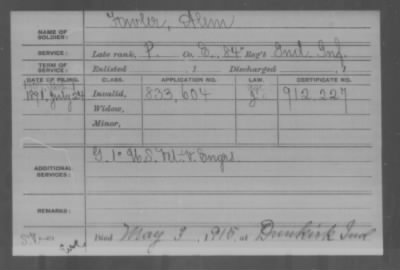 NAME OF SOLDIER: Fowler, Alem
SERVICE: Late rank, P. Co. E, 84" Reg't Ind Inf.
TERM OF SERVICE: Enlisted , 1 Discharged , 1
DATE OF FILING. CLASS. APPLICATION NO. LAW. CERTIFICATE NO.
1891 July 24 Invalid, 833,604 912,227
Widow,
Minor,
ADDITIONAL SERVICES: G. 1" U.S. Vet. V. Engrs.
REMARKS:
Died May 3, 1915, at Dunkirk Ind